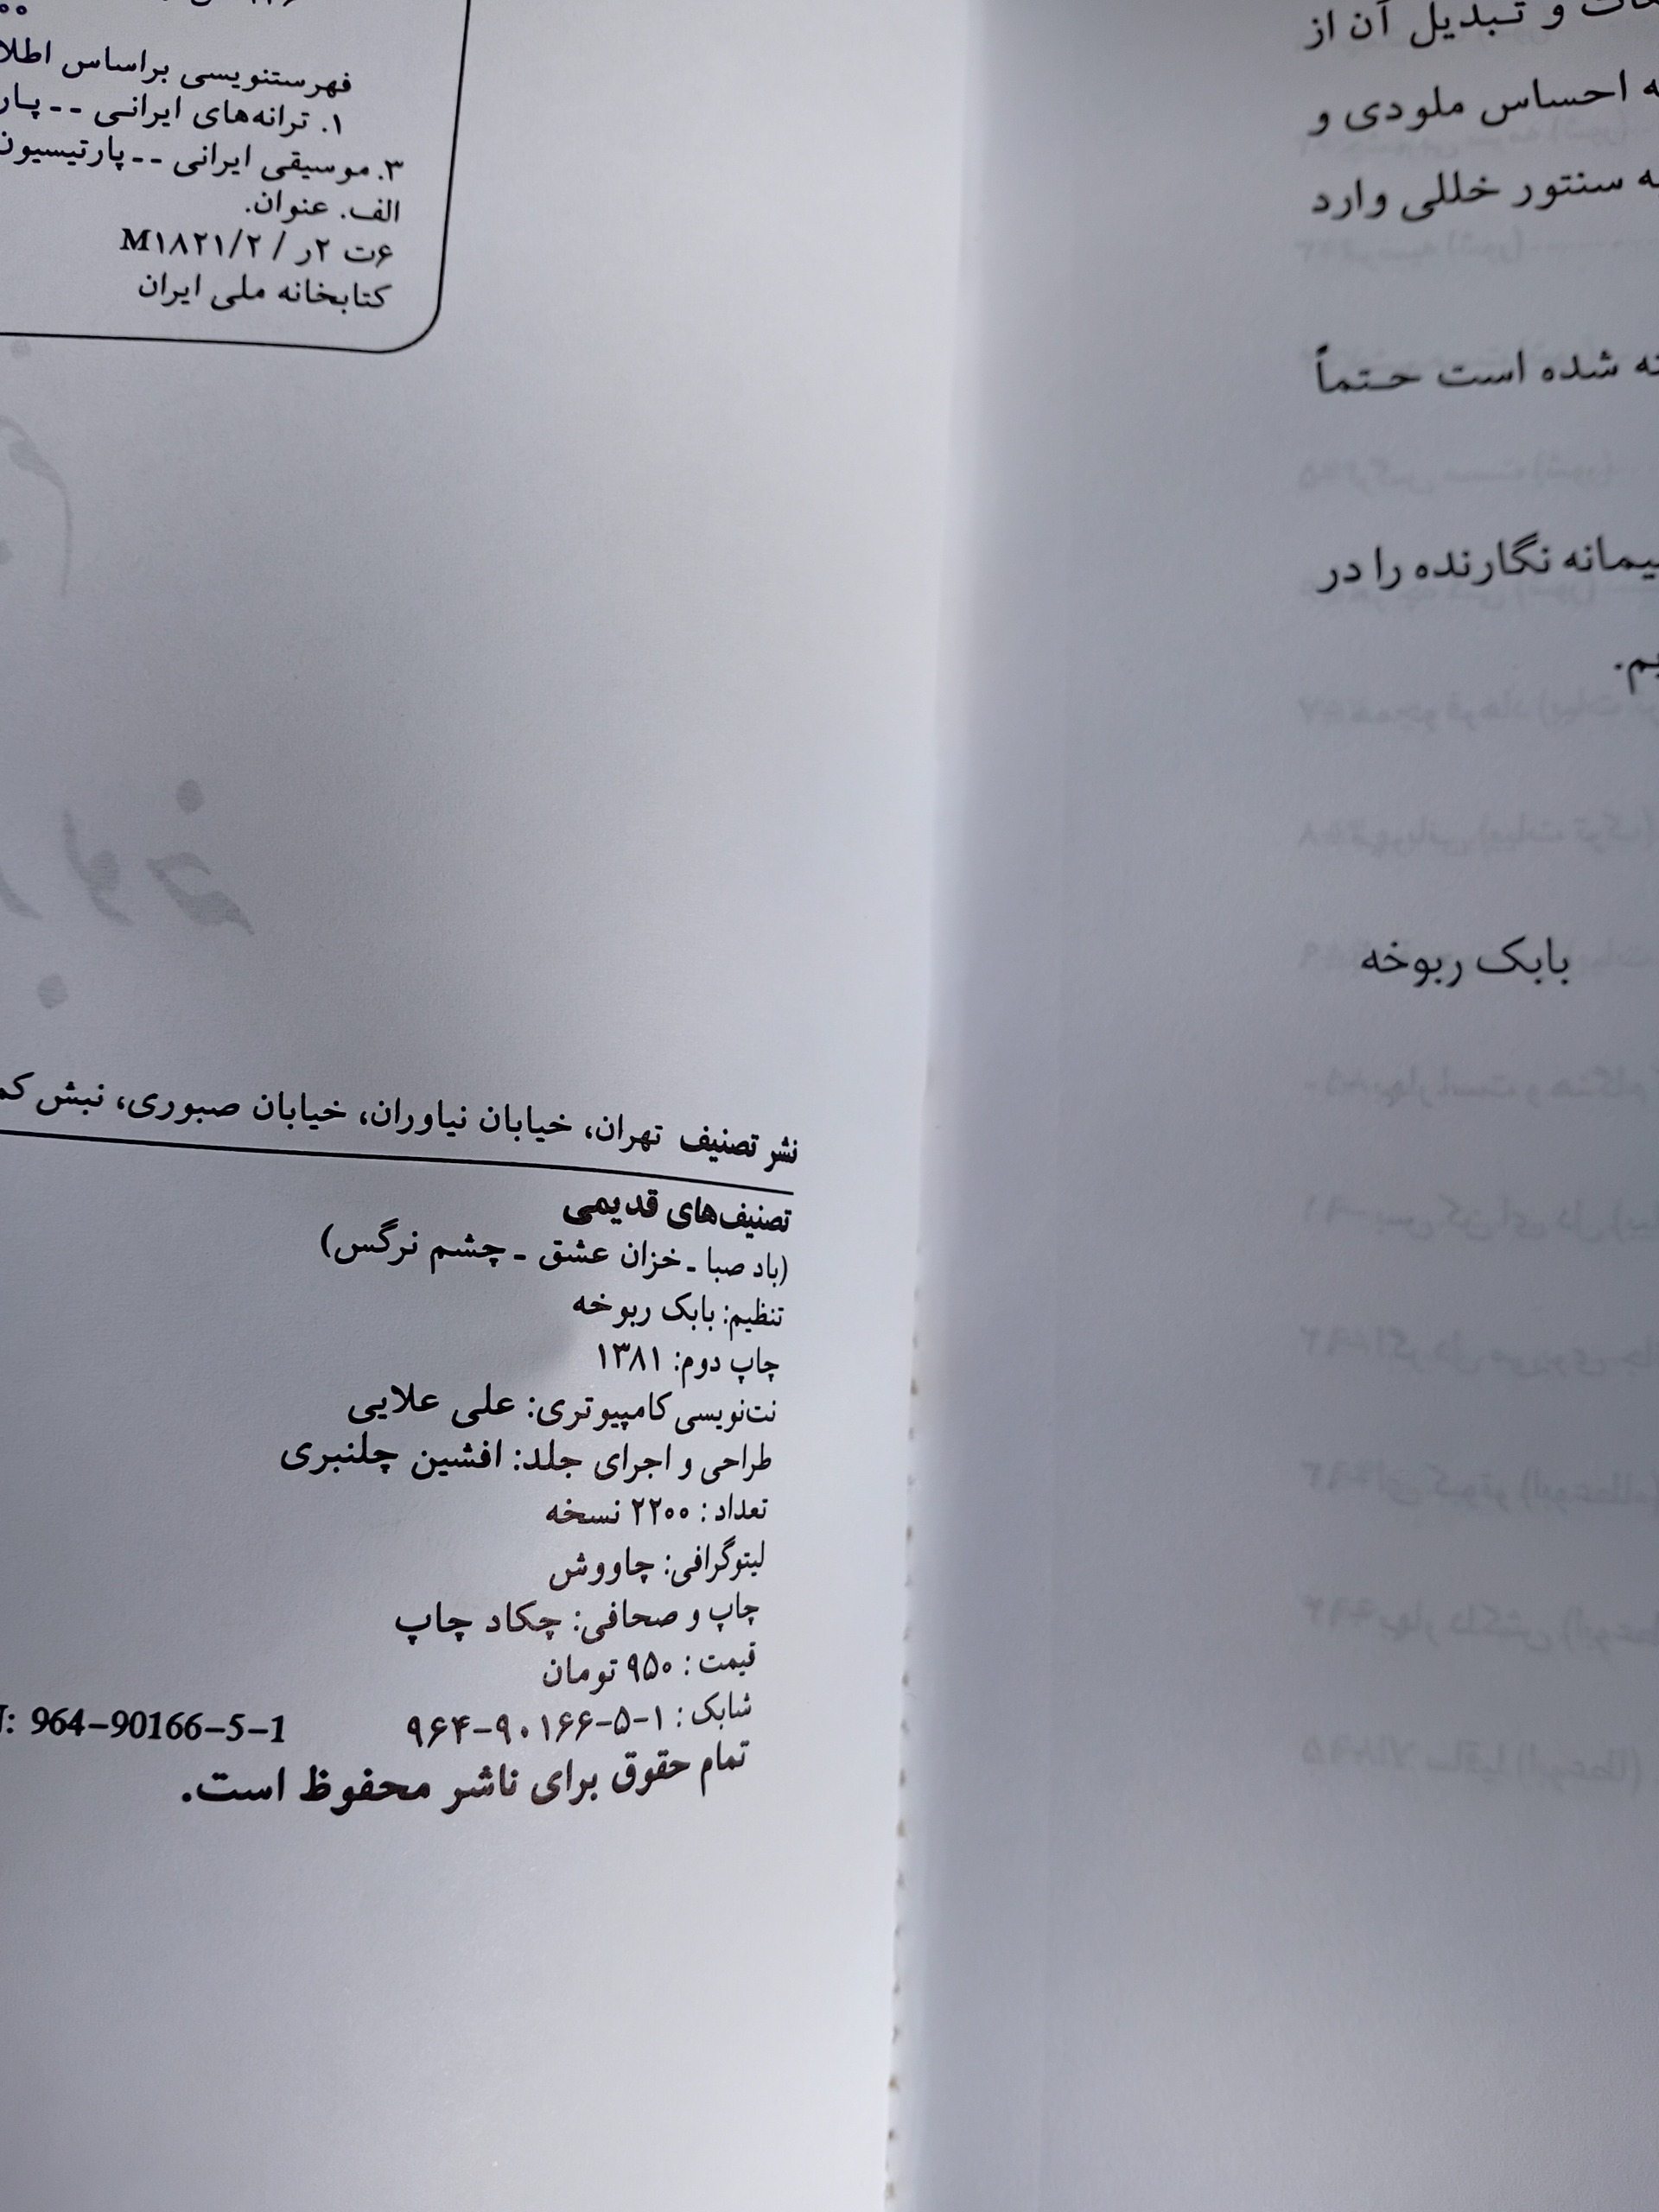 فهرستنویسی براساس
۱. ترانه‌های ایرانی --
۳. موسیقی ایرانی -- پارتیسیون
الف. عنوان.
M۱۸۲۱/۲ / ۶ت ۲ر
کتابخانه ملی ایران
نشر تصنیف تهران، خیابان نیاوران، خیابان صبوری، نبش
تصنیف‌های قدیمی
(باد صبا - خزان عشق - چشم نرگس)
تنظیم: بابک ربوخه
چاپ دوم: ۱۳۸۱
نت‌نویسی کامپیوتری: علی علایی
طراحی و اجرای جلد: افشین چلنبری
تعداد: ۲۲۰۰ نسخه
لیتوگرافی: چاووش
چاپ و صحافی: چکاد چاپ
قیمت: ۹۵۰ تومان
شابک: ۱-۵-۹۰۱۶۶-۹۶۴ 964-90166-5-1
تمام حقوق برای ناشر محفوظ است.
و تبدیل آن از
احساس ملودی و
سنتور خللی وارد
شده است حتماً
نگارنده را در
بابک ربوخه